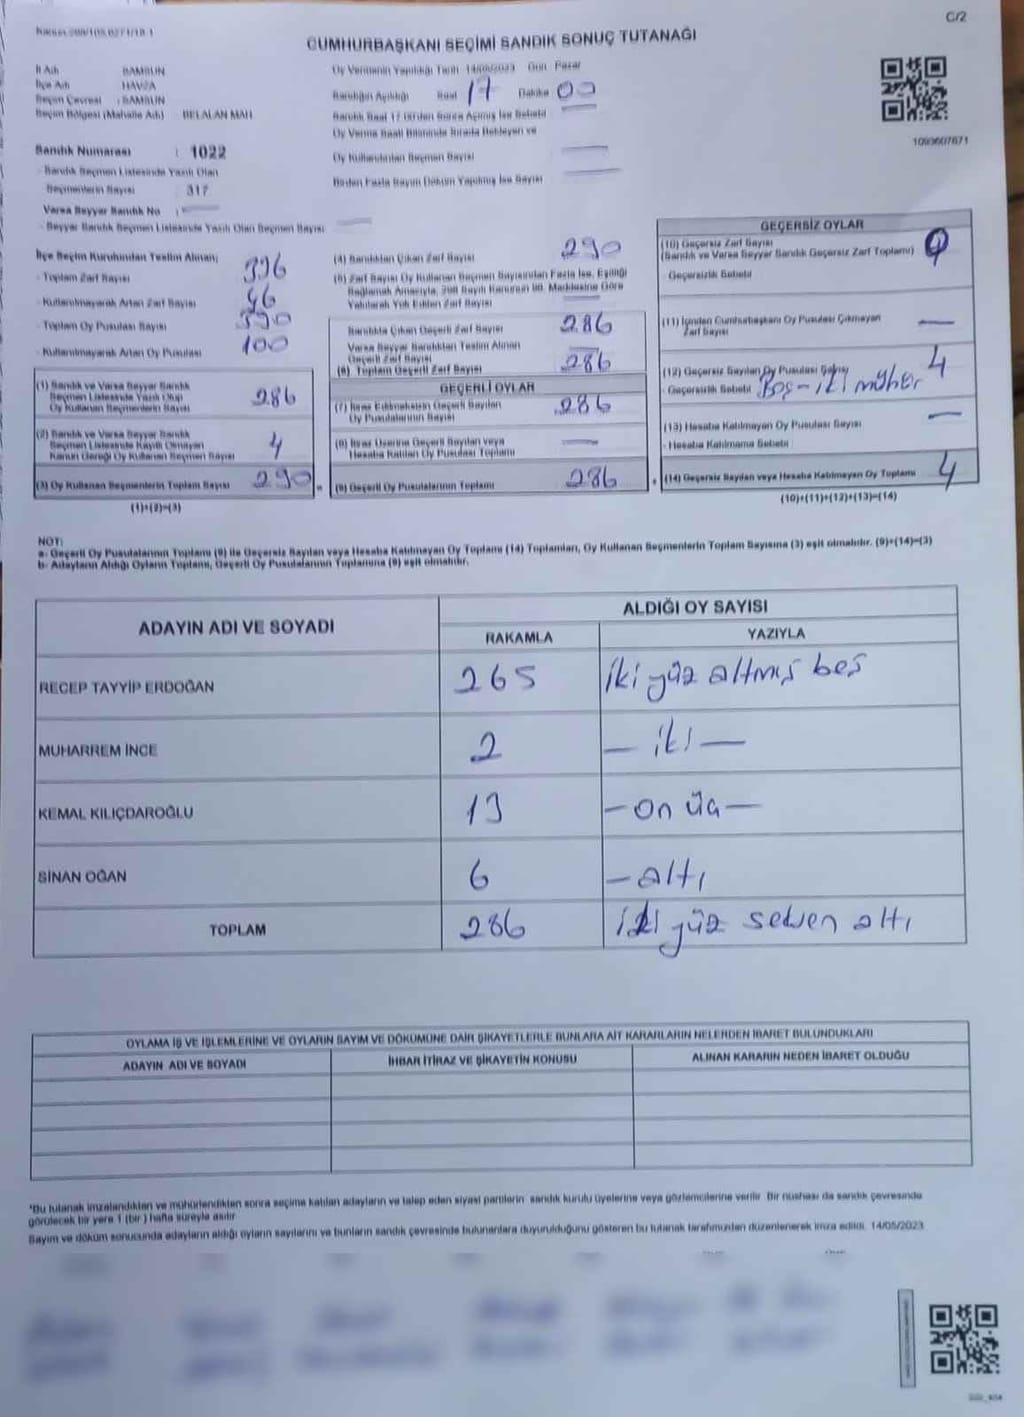 C/2
CUMHURBAŞKANI SEÇİMİ SANDIK SONUÇ TUTANAĞI
İl Adı : SAMSUN
İlçe Adı : HAVZA
Seçim Çevresi : SAMSUN
Seçim Bölgesi (Mahalle Adı) : BELALAN MAH
Oy Vermenin Yapıldığı Tarih 14/05/2023 Gün Pazar
Sandığın Açıldığı Saat 17 Dakika 00
Sandık Saat 17.00'den Sonra Açılmış İse Sebebi
Oy Verme Saati Bitiminde Sırada Bekleyen ve
Oy Kullandırılan Seçmen Sayısı
Birden Fazla Sayım Döküm Yapılmış İse Sayısı
1093607671
Sandık Numarası : 1022
- Sandık Seçmen Listesinde Yazılı Olan
Seçmenlerin Sayısı : 317
Varsa Seyyar Sandık No :
- Seyyar Sandık Seçmen Listesinde Yazılı Olan Seçmen Sayısı
İlçe Seçim Kurulundan Teslim Alınan;
- Toplam Zarf Sayısı 336
- Kullanılmayarak Artan Zarf Sayısı 46
- Toplam Oy Pusulası Sayısı 390
- Kullanılmayarak Artan Oy Pusulası 100
(1) Sandık ve Varsa Seyyar Sandık
Seçmen Listesinde Yazılı Olup
Oy Kullanan Seçmenlerin Sayısı 286
(2) Sandık ve Varsa Seyyar Sandık
Seçmen Listesinde Kayıtlı Olmayan
Kanun Gereği Oy Kullanan Seçmen Sayısı 4
(3) Oy Kullanan Seçmenlerin Toplam Sayısı 290 =
(1)+(2)=(3)
(4) Sandıktan Çıkan Zarf Sayısı 290
(5) Zarf Sayısı Oy Kullanan Seçmen Sayısından Fazla İse, Eşitliği
Sağlamak Amacıyla, 298 Sayılı Kanunun 98. Maddesine Göre
Yakılarak Yok Edilen Zarf Sayısı
Sandıkta Çıkan Geçerli Zarf Sayısı 286
Varsa Seyyar Sandıktan Teslim Alınan
Geçerli Zarf Sayısı
(6) Toplam Geçerli Zarf Sayısı 286
GEÇERLİ OYLAR
(7) İtiraz Edilmeksizin Geçerli Sayılan
Oy Pusulalarının Sayısı 286
(8) İtiraz Üzerine Geçerli Sayılan veya
Hesaba Katılan Oy Pusulası Toplamı
(9) Geçerli Oy Pusulalarının Toplamı 286 +
GEÇERSİZ OYLAR
(10) Geçersiz Zarf Sayısı
(Sandık ve Varsa Seyyar Sandık Geçersiz Zarf Toplamı)
- Geçersizlik Sebebi
(11) İçinden Cumhurbaşkanı Oy Pusulası Çıkmayan
Zarf Sayısı
(12) Geçersiz Sayılan Oy Pusulası Sayısı 4
- Geçersizlik Sebebi Boş - iki mühür
(13) Hesaba Katılmayan Oy Pusulası Sayısı
- Hesaba Katılmama Sebebi
(14) Geçersiz Sayılan veya Hesaba Katılmayan Oy Toplamı 4
(10)+(11)+(12)+(13)=(14)
NOT:
a- Geçerli Oy Pusulalarının Toplamı (9) ile Geçersiz Sayılan veya Hesaba Katılmayan Oy Toplamı (14) Toplamları, Oy Kullanan Seçmenlerin Toplam Sayısına (3) eşit olmalıdır. (9)+(14)=(3)
b- Adayların Aldığı Oyların Toplamı, Geçerli Oy Pusulalarının Toplamına (9) eşit olmalıdır.
ADAYIN ADI VE SOYADI
ALDIĞI OY SAYISI
RAKAMLA YAZIYLA
RECEP TAYYİP ERDOĞAN 265 iki yüz altmış beş
MUHARREM İNCE 2 — iki —
KEMAL KILIÇDAROĞLU 13 — on üç —
SİNAN OĞAN 6 — altı
TOPLAM 286 iki yüz seksen altı
OYLAMA İŞ VE İŞLEMLERİNE VE OYLARIN SAYIM VE DÖKÜMÜNE DAİR ŞİKAYETLERLE BUNLARA AİT KARARLARIN NELERDEN İBARET BULUNDUKLARI
ADAYIN ADI VE SOYADI İHBAR İTİRAZ VE ŞİKAYETİN KONUSU ALINAN KARARIN NEDEN İBARET OLDUĞU
*Bu tutanak imzalandıktan ve mühürlendikten sonra seçime katılan adayların ve talep eden siyasi partilerin sandık kurulu üyelerine veya gözlemcilerine verilir. Bir nüshası da sandık çevresinde
görülecek bir yere 1 (bir) hafta süreyle asılır.
Sayım ve döküm sonucunda adayların aldığı oyların sayılarını ve bunların sandık çevresinde bulunanlara duyurulduğunu gösteren bu tutanak tarafımızdan düzenlenerek imza edildi. 14/05/2023